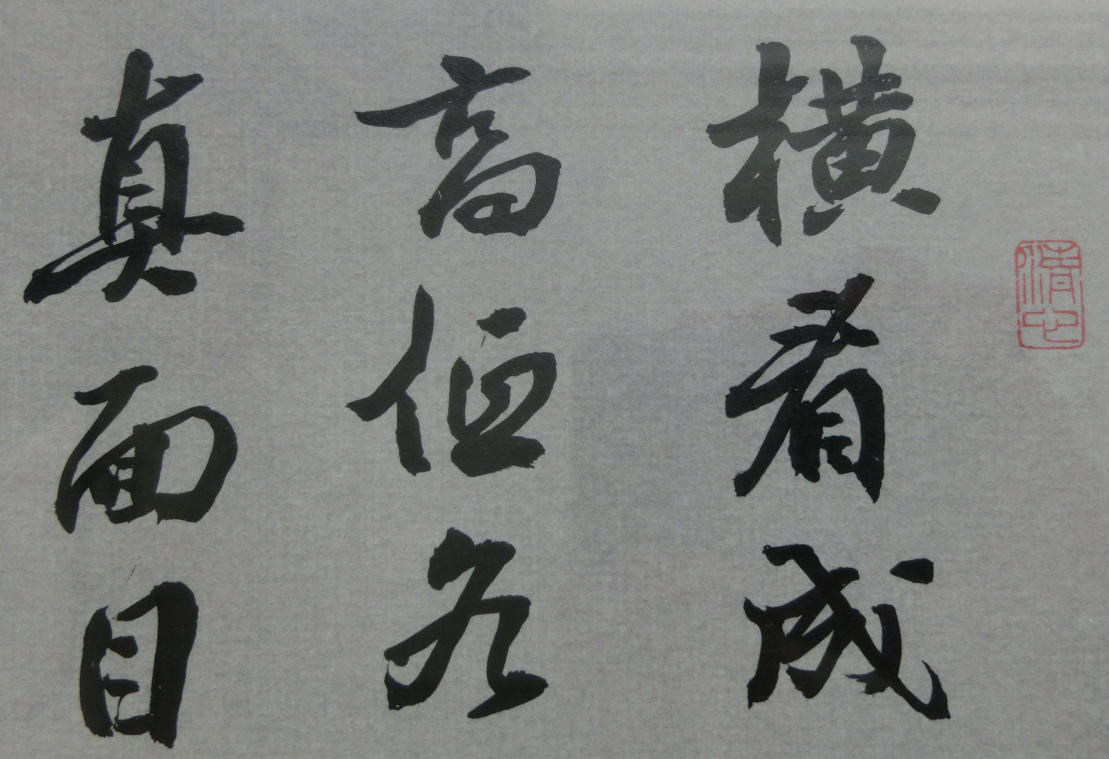 横看成
高低各
真面目